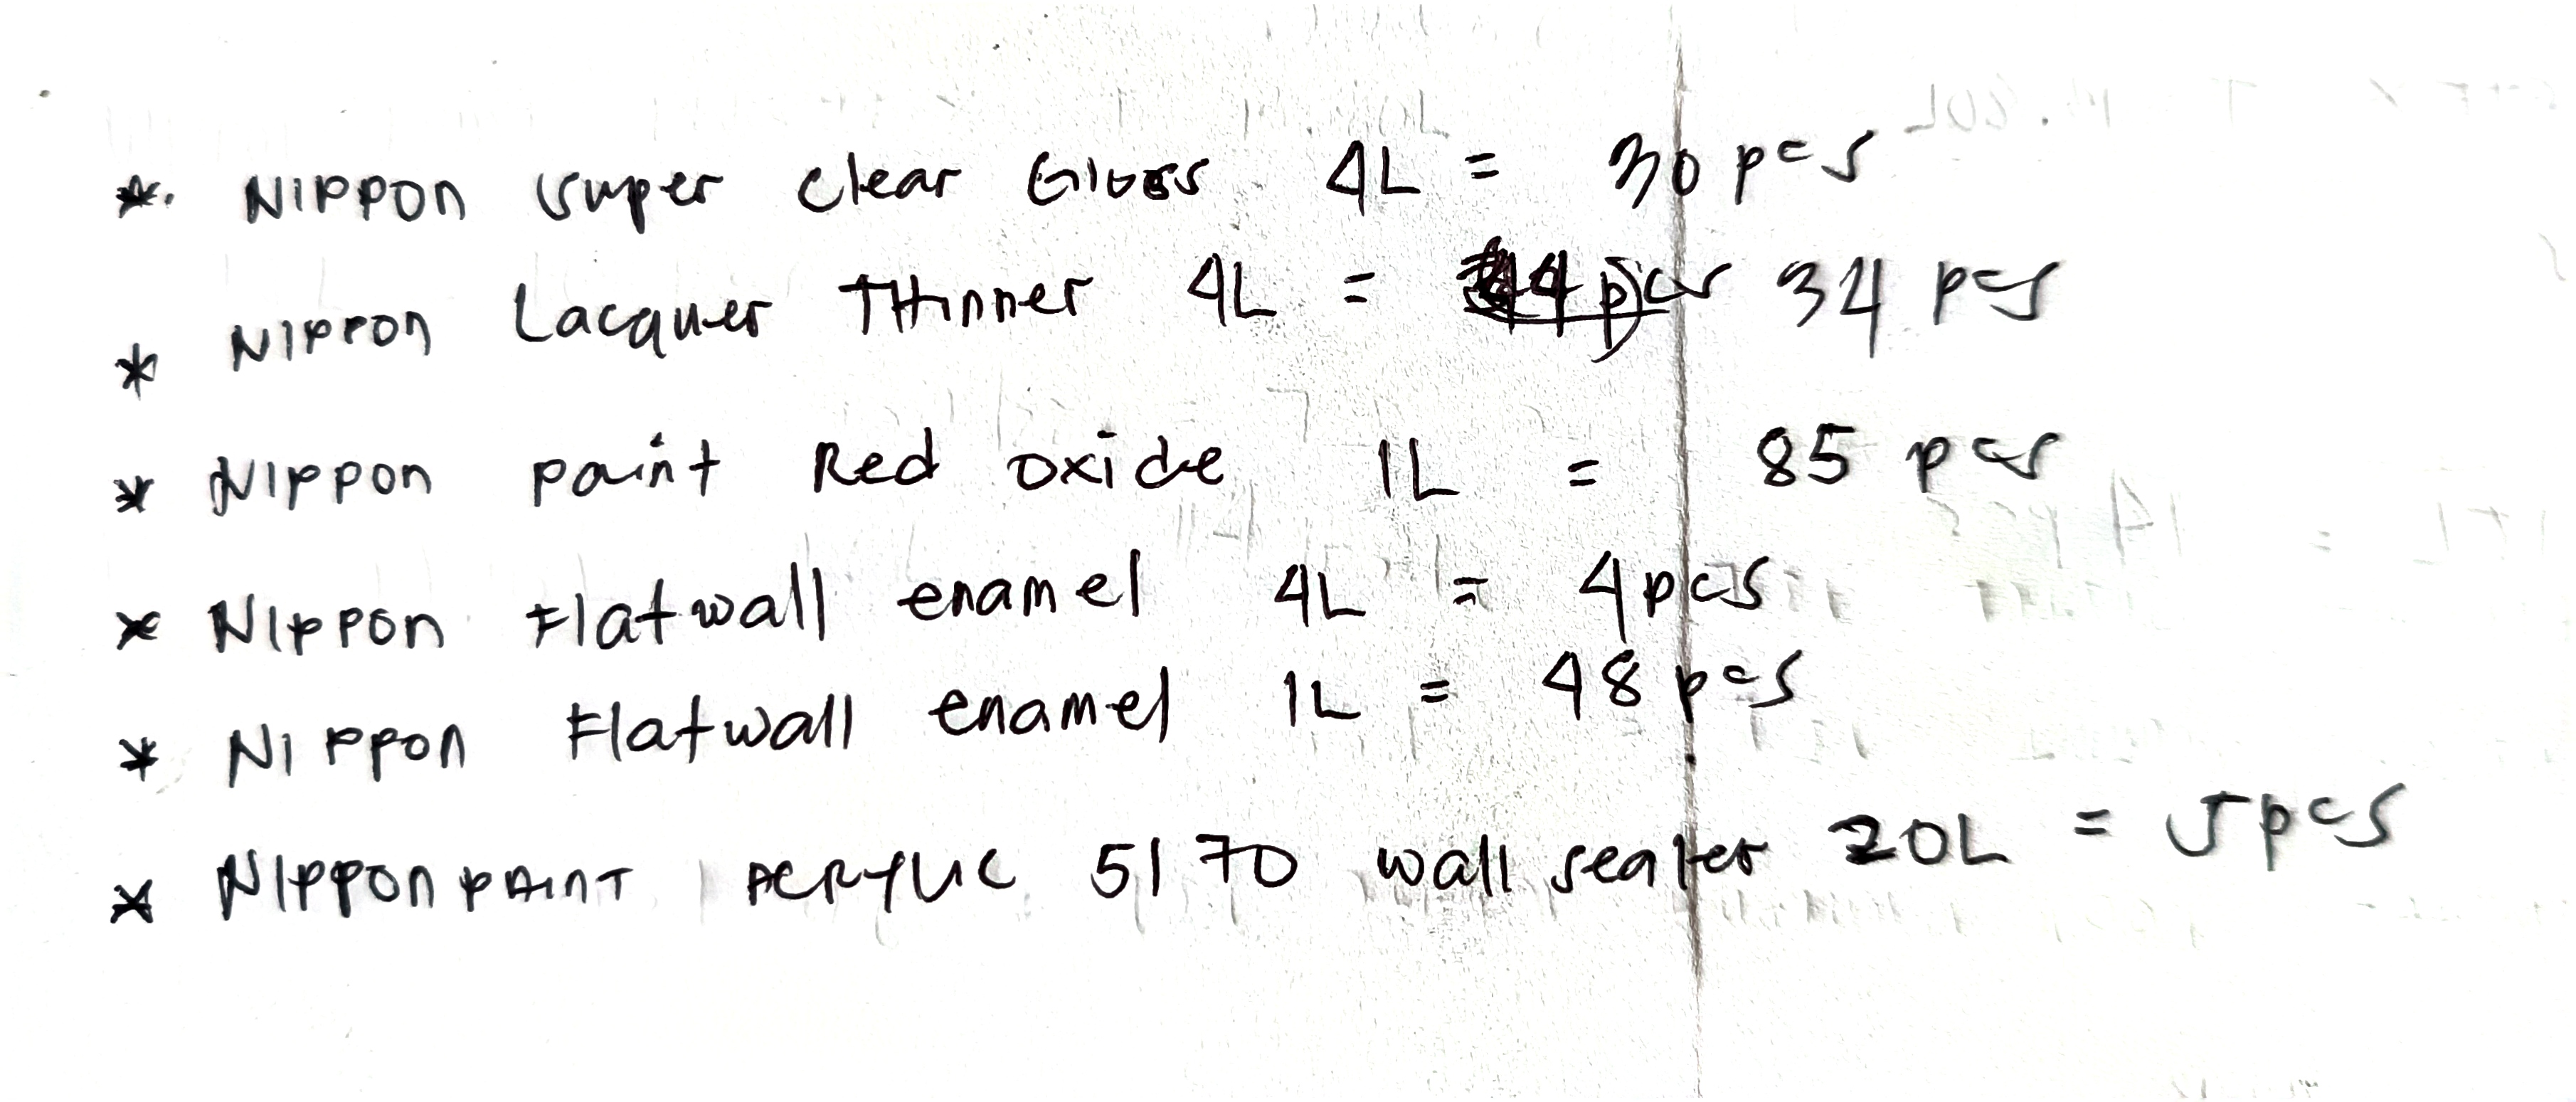 *. NIPPON super clear Gloss 4L = 30 pcs
* NIPPON Lacquer THinner 4L = 34 pcs
* NIPPON paint Red oxide 1L = 85 pcs
* NIPPON Flatwall enamel 4L = 4pcs
* NIPPON Flatwall enamel 1L = 48 pcs
* NIPPON PAINT ACRYLIC 5170 wall sealer 20L = 5pcs